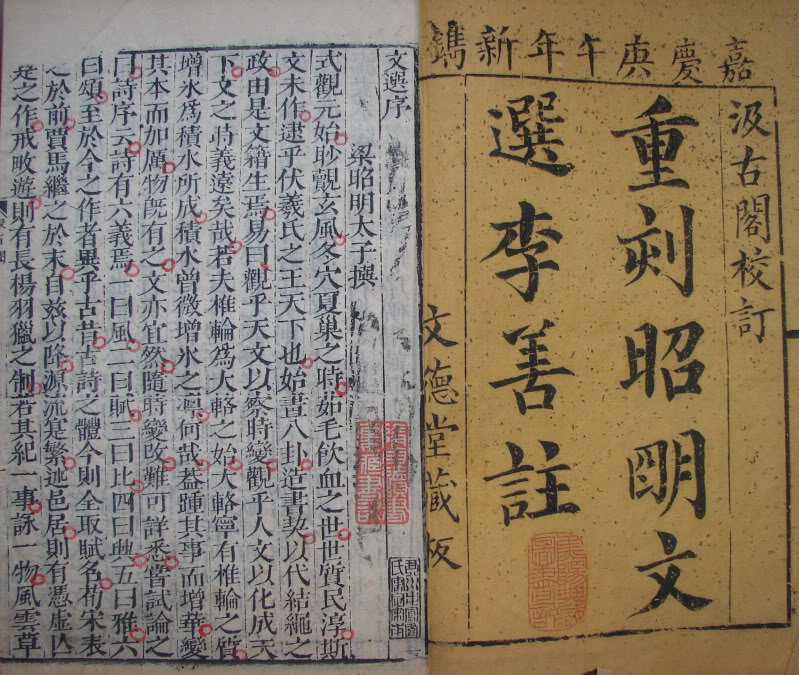 嘉慶庚午年新鐫
汲古閣校訂
重刻昭明文
選李善註
文德堂藏板
文選序
梁昭明太子撰
式觀元始眇覿玄風冬穴夏巢之時茹毛飲血之世世質民淳斯
文未作逮乎伏羲氏之王天下也始畫八卦造書契以代結繩之
政由是文籍生焉易曰觀乎天文以察時變觀乎人文以化成天
下文之時義遠矣哉若夫椎輪爲大輅之始大輅寧有椎輪之質
增氷爲積水所成積水曾微增氷之凛何哉葢踵其事而增華變
其本而加厲物旣有之文亦宜然隨時變改難可詳悉嘗試論之
曰詩序云詩有六義焉一曰風二曰賦三曰比四曰興五曰雅六
曰頌至於今之作者異乎古昔古詩之體今則全取賦名荀宋表
之於前賈馬繼之於末自兹以降源流寔繁述邑居則有憑虛亡
是之作戒畋遊則有長楊羽獵之制若其紀一事詠一物風雲草